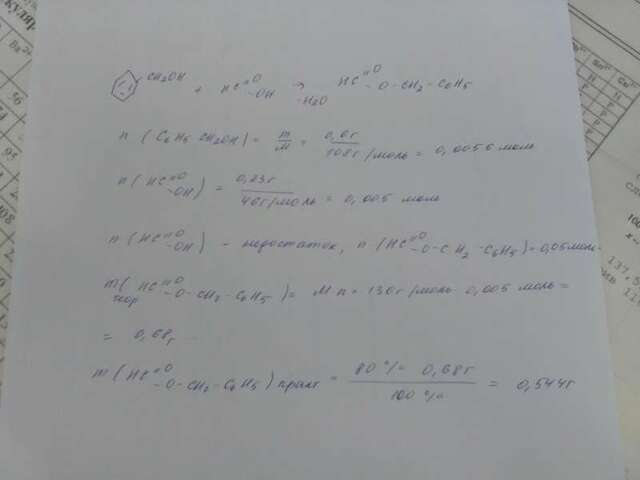 CH2OH + HC=O -OH → -H2O HC=O -O-CH2-C6H5
n (C6H5 CH2OH) = m/M = 0,6г/108г/моль = 0,0056 моль
n (HC=O -OH) = 0,23г/46г/моль = 0,005 моль
n (HC=O -OH) - недостаток, n (HC=O -O-CH2-C6H5) = 0,05моль
m теор (HC=O -O-CH2-C6H5) = M·n = 136г/моль · 0,005 моль =
= 0,68г
m (HC=O -O-CH2-C6H5) практ = 80% · 0,68г/100% = 0,544г